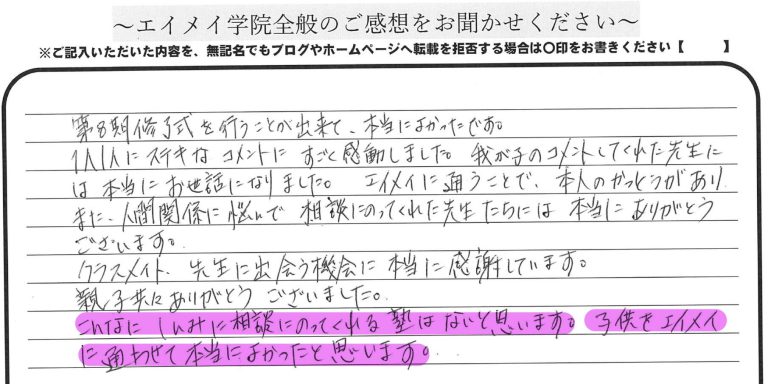 ～エイメイ学院全般のご感想をお聞かせください～
※ご記入いただいた内容を、無記名でもブログやホームページへ転載を拒否する場合は〇印をお書きください【　　　】
第8期修了式を行うことが出来て、本当によかったです。
1人1人にステキなコメントにすごく感動しました。我が子のコメントしてくれた先生に
は本当にお世話になりました。エイメイに通うことで、本人のかっとうがあり
また、人間関係に悩んで相談にのってくれた先生たちには本当にありがとう
ございます。
クラスメイト、先生に出会う機会に本当に感謝しています。
親子共々ありがとうございました。
こんなにしんみに相談にのってくれる塾はないと思います。子供をエイメイ
に通わせて本当によかったと思います。